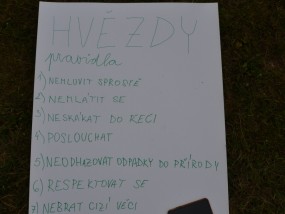 HVĚZDY
pravidla
1) NEMLUVIT SPROSTĚ
2) NEMLÁTIT SE
3) NESKÁKAT DO ŘEČI
4) POSLOUCHAT
5) NEODHAZOVAT ODPADKY DO PŘÍRODY
6) RESPEKTOVAT SE
7) NEBRAT CIZÍ VĚCI